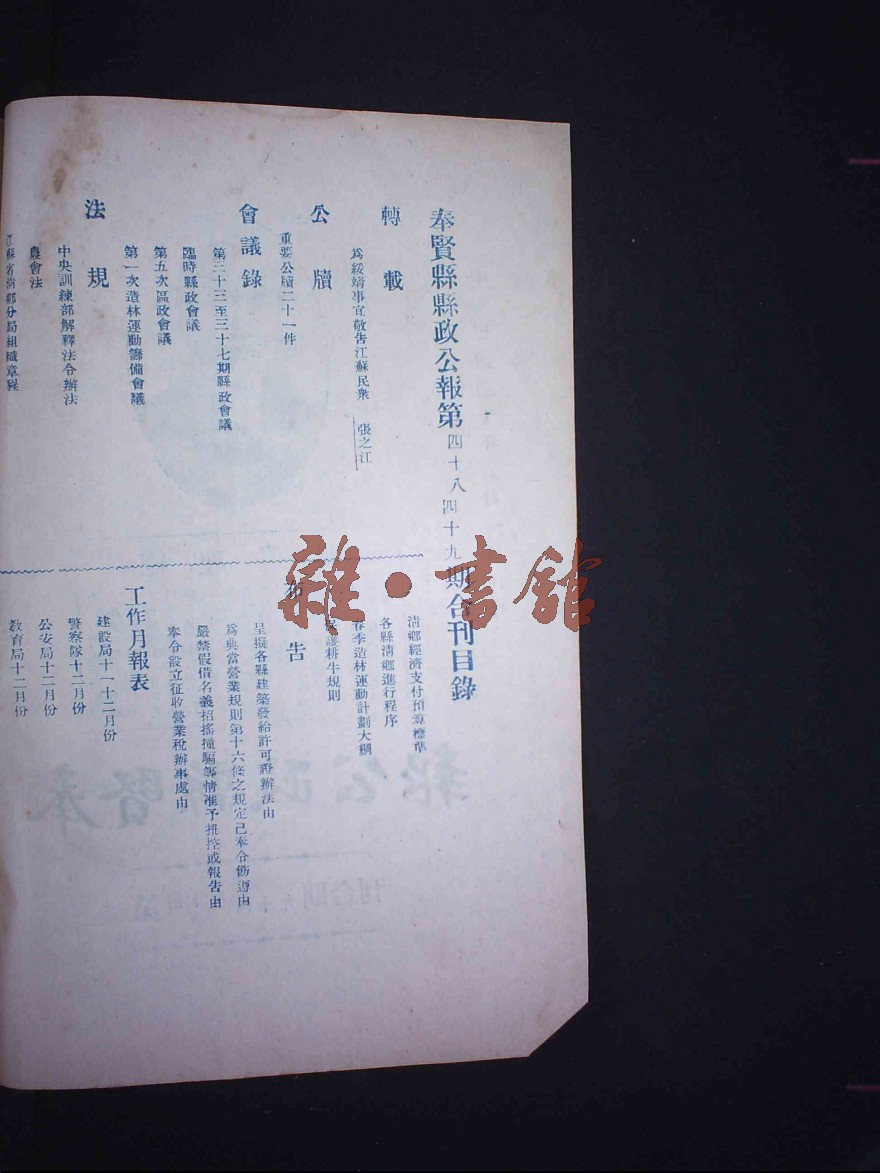 奉賢縣縣政公報第四十八四十九期合刊目錄
轉載
為綏靖事宜敬告江蘇民衆 張之江
公牘
重要公牘二十一件
會議錄
第三十三至三十七期縣政會議
臨時縣政會議
第五次區政會議
第一次造林運動籌備會議
法規
中央訓練部解釋法令辦法
農會法
江蘇省清鄉分局組織章程
清鄉經濟支付預算標準
各縣清鄉進行程序
春季造林運動計劃大綱
保護耕牛規則
布告
呈擬各縣建築發給許可證辦法由
為典當營業規則第十六條之規定已奉令飭遵由
嚴禁假借名義招搖撞騙等情准予扭控或報告由
奉令設立征收營業稅辦事處由
工作月報表
建設局十一十二月份
警察隊十二月份
公安局十二月份
教育局十二月份
雜·書館